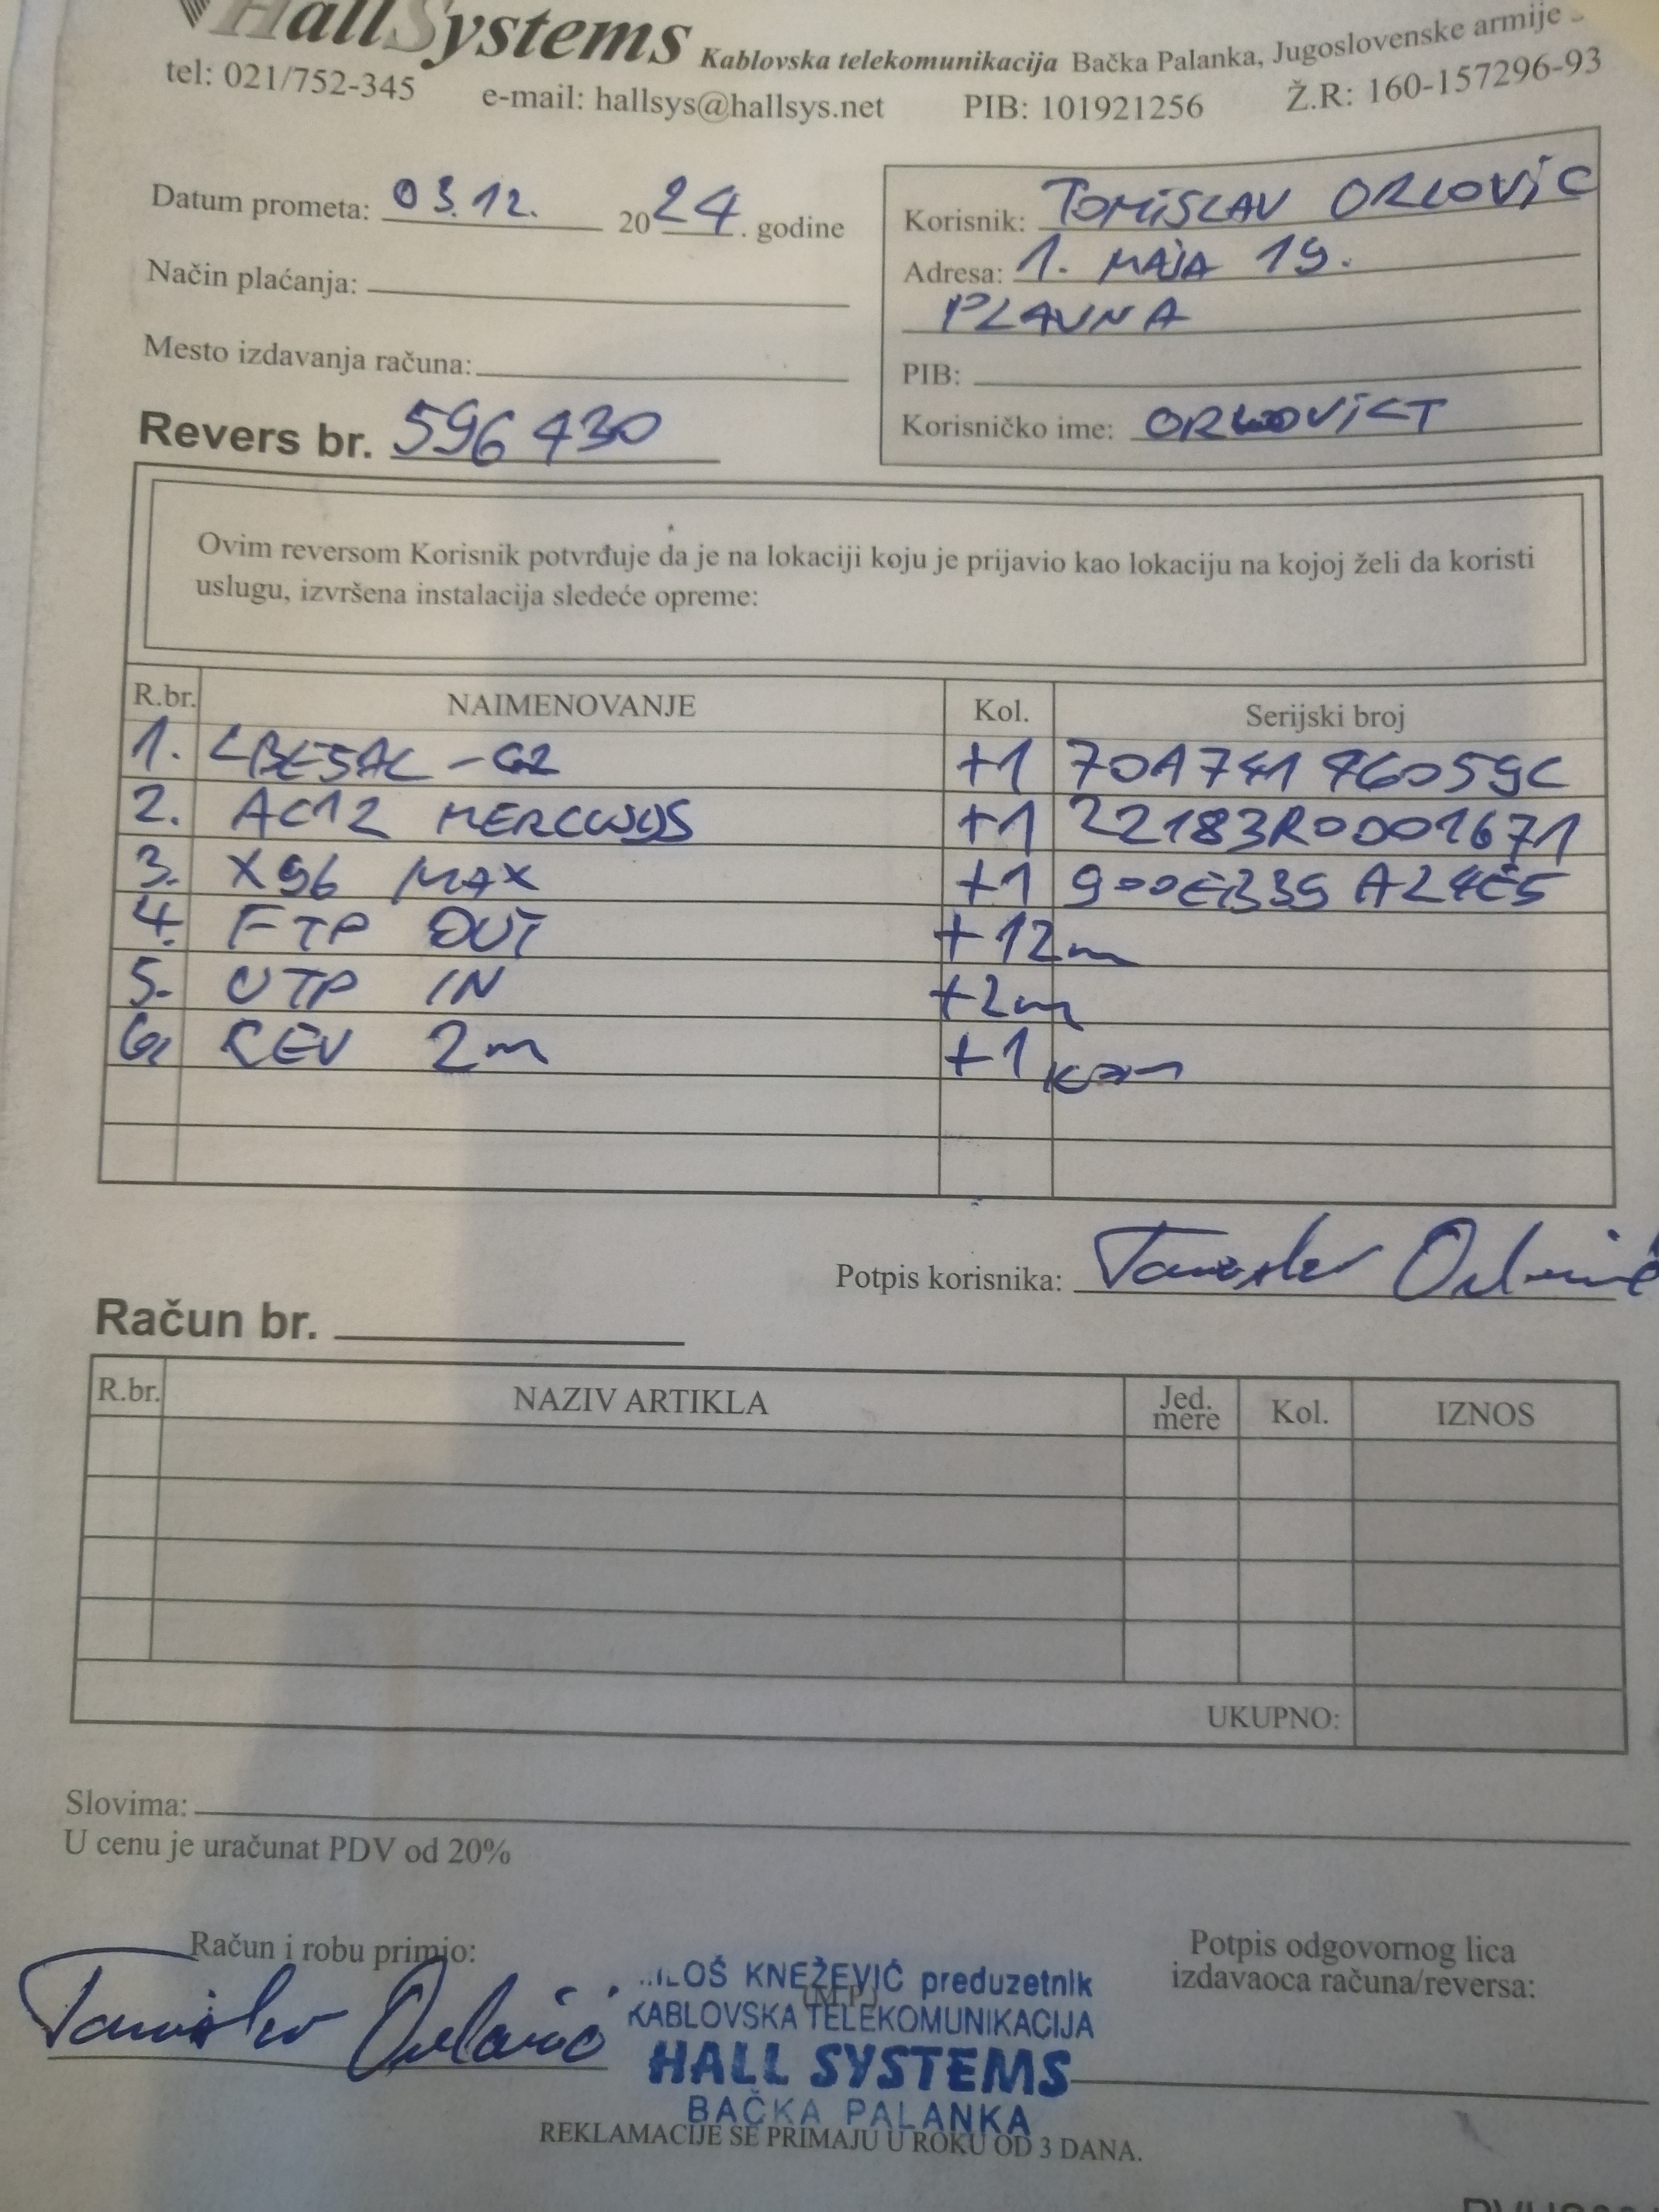 HallSystems Kablovska telekomunikacija Bačka Palanka, Jugoslovenske armije
tel: 021/752-345 e-mail: hallsys@hallsys.net PIB: 101921256 Ž.R: 160-157296-93
Datum prometa: 03.12. 2024. godine
Način plaćanja:
Mesto izdavanja računa:
Revers br. 596430
Korisnik: TOMISLAV ORLOVIĆ
Adresa: 1. MAJA 19.
PLAVNA
PIB:
Korisničko ime: ORLOVICT
Ovim reversom Korisnik potvrđuje da je na lokaciji koju je prijavio kao lokaciju na kojoj želi da koristi
uslugu, izvršena instalacija sledeće opreme:
R.br. NAIMENOVANJE Kol. Serijski broj
1. LBE5AC-G2 +1 70A74196059C
2. AC12 MERCUSYS +1 22183R0001671
3. X96 MAX +1 900EB39A24E5
4. FTP OUT +12m
5. UTP IN +2m
6. REV 2m +1 kom
Potpis korisnika: Tomislav Orlović
Račun br.
R.br. NAZIV ARTIKLA Jed. mere Kol. IZNOS
UKUPNO:
Slovima:
U cenu je uračunat PDV od 20%
Račun i robu primio:
Tomislav Orlović
(M.P.)
LOŠ KNEŽEVIĆ preduzetnik
KABLOVSKA TELEKOMUNIKACIJA
HALL SYSTEMS
BAČKA PALANKA
Potpis odgovornog lica
izdavaoca računa/reversa:
REKLAMACIJE SE PRIMAJU U ROKU OD 3 DANA.